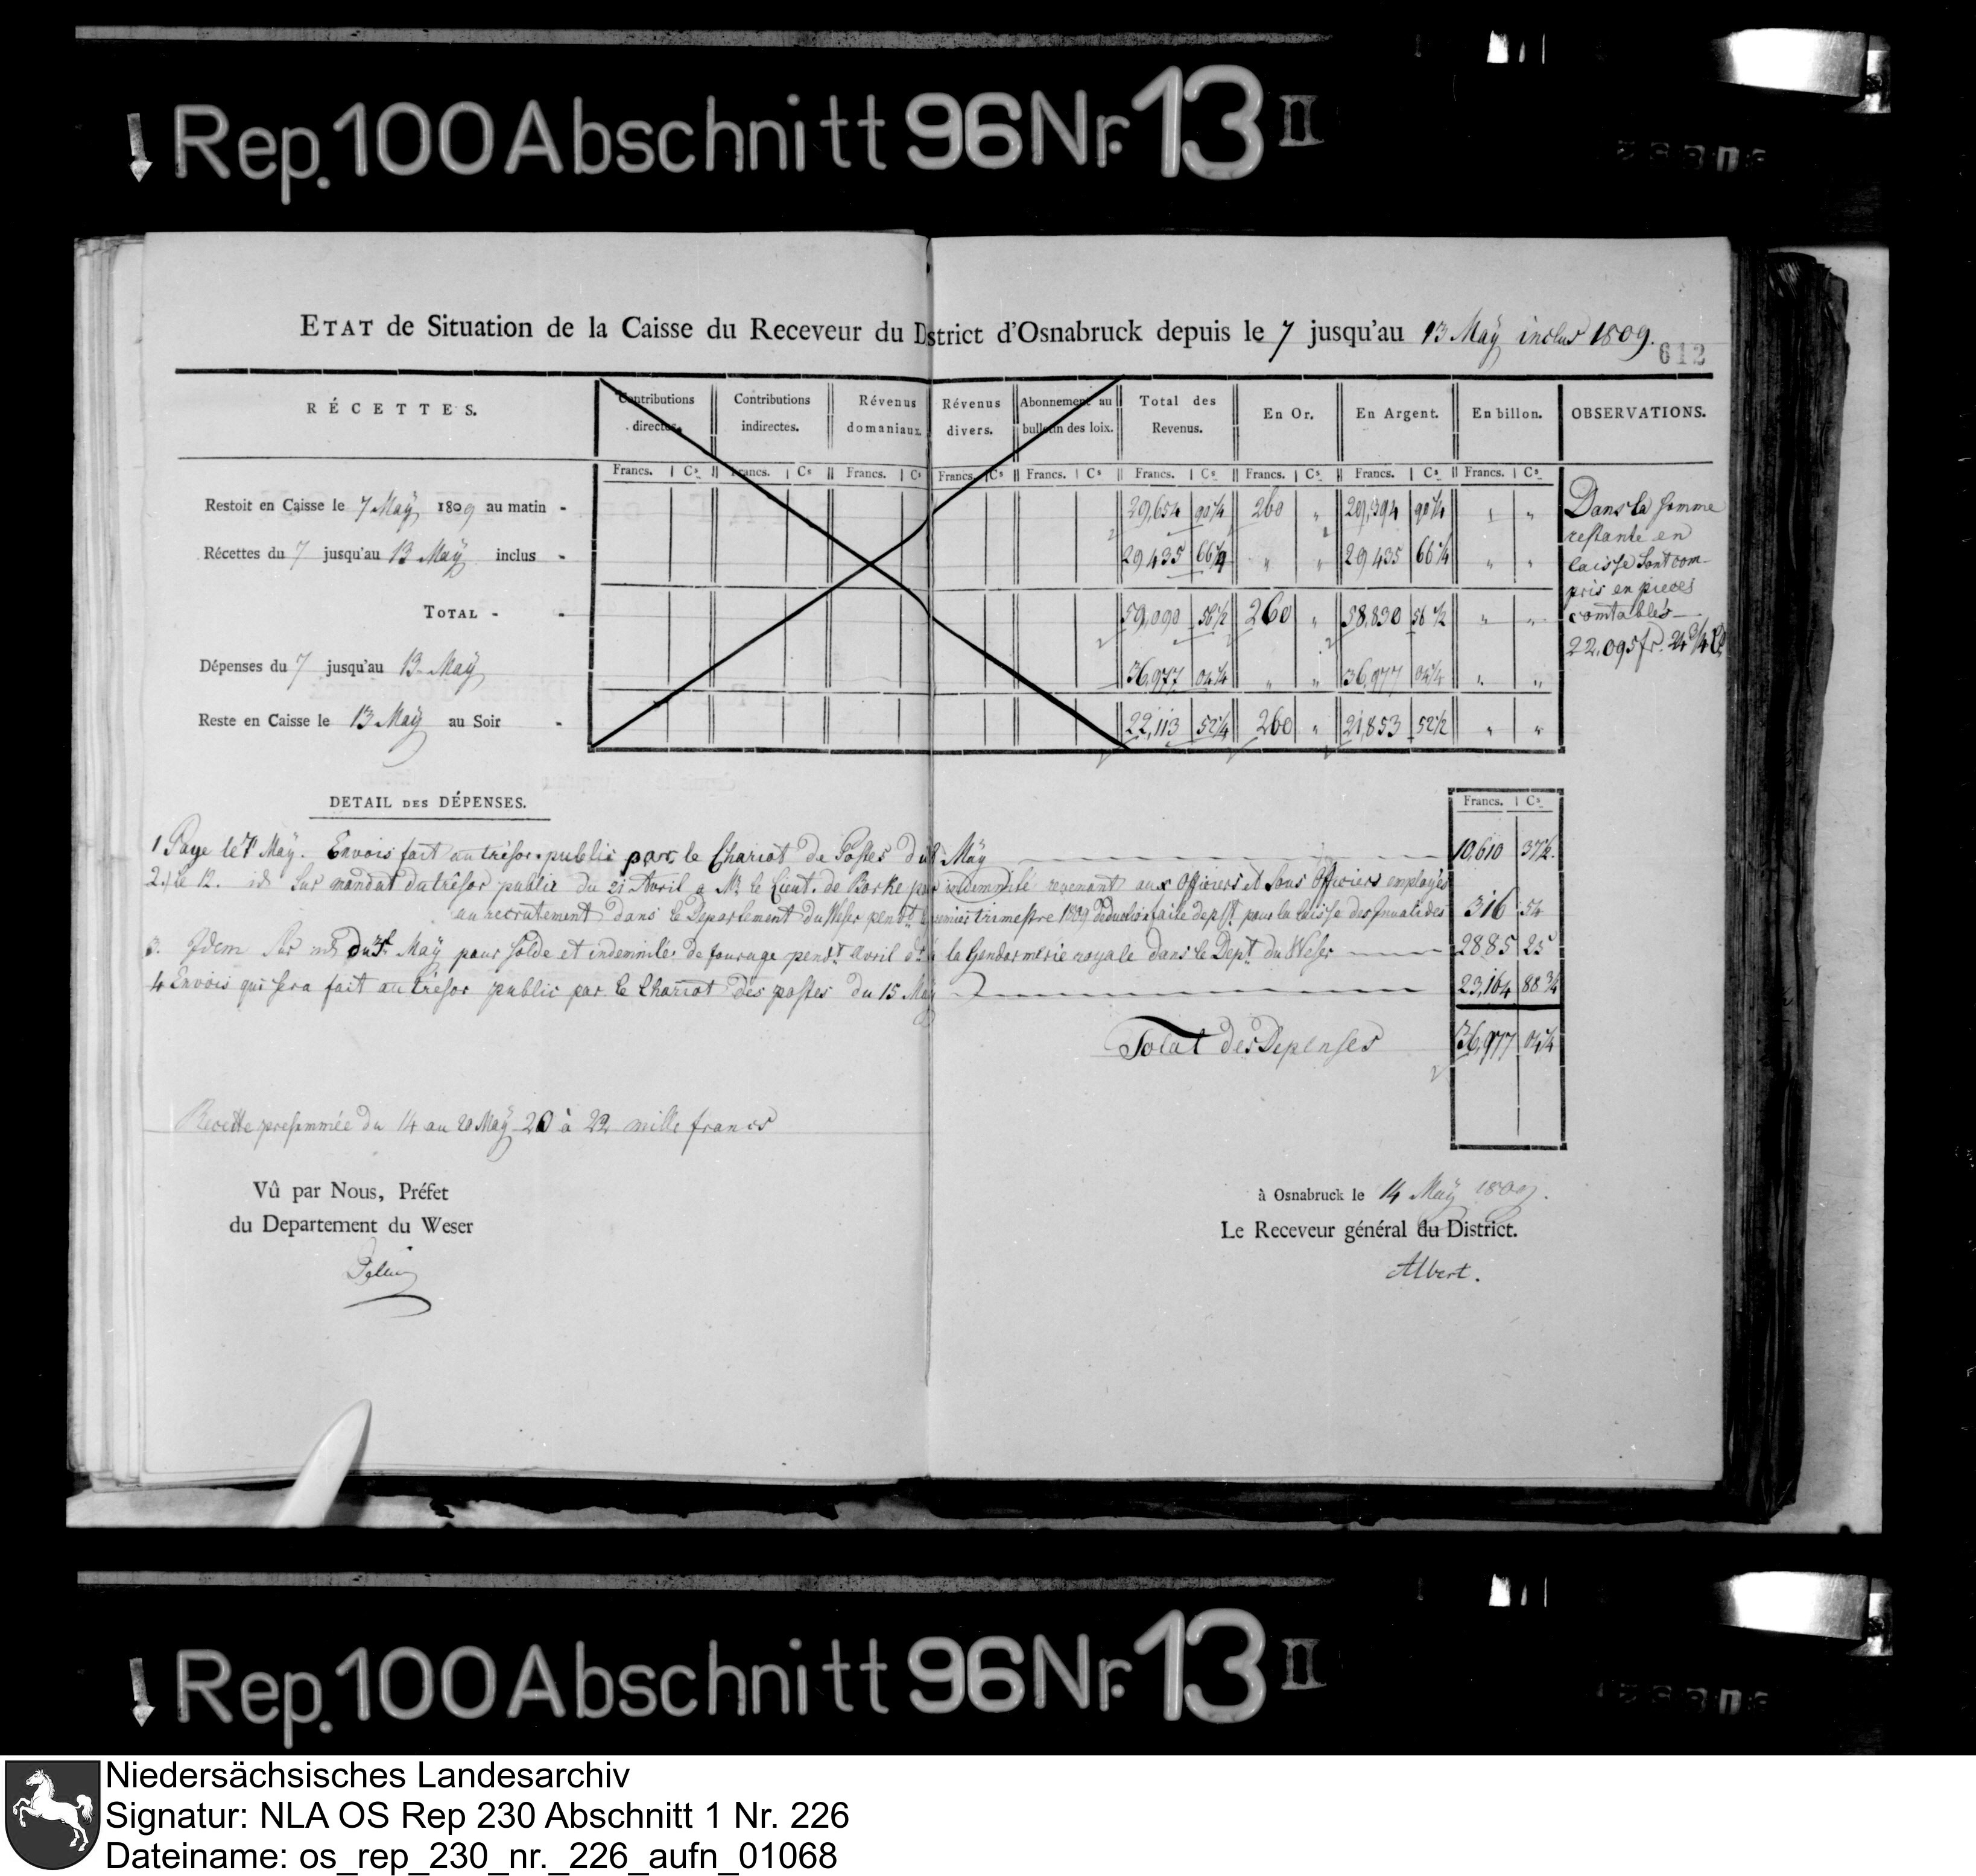 Rep. 100 Abschnitt 96 Nr. 13 II
ETAT de Situation de la Caisse du Receveur du District d'Osnabruck depuis le 7 jusqu'au 13 Maÿ inclus 1809.
612
RÉCETTES. Contributions directes. Contributions indirectes. Révenus domaniaux. Révenus divers. Abonnement au bulletin des loix. Total des Revenus. En Or. En Argent. En billon. OBSERVATIONS.
Francs. Cs Francs. Cs Francs. Cs Francs. Cs Francs. Cs Francs. Cs Francs. Cs Francs. Cs Francs. Cs
Restoit en Caisse le 7 Maÿ 1809 au matin - 29,654 90 1/4 260 " 29,394 90 1/4 " "
Récettes du 7 jusqu'au 13 Maÿ inclus - 29435 66 1/4 " " 29435 66 1/4 " "
TOTAL - - 59,090 56 1/2 260 " 58,830 56 1/2 " "
Dépenses du 7 jusqu'au 13 Maÿ 36,977 04 1/4 " " 36,977 04 1/4 " "
Reste en Caisse le 13 Maÿ au Soir - 22,113 52 1/4 260 " 21,853 52 1/2 " "
Dans la somme
restante en
caisse sont com-
pris en pieces
comtables
22,095 fr. 24 3/4 Cs
DETAIL DES DÉPENSES.
Francs. Cs
1 Paye le 7 Maÿ. Envois fait au trésor public par le Chariot de Postes du 8 Maÿ 10,610 37 1/2
2.) le 12. id Sur mandat du trésor public du 21 Avril a Mr le Lieut. de Borke pour indemnité revenant aux Officiers et Sous Officiers employés
au recrutement dans le Departement du Weser pendt le premier trimestre 1809 deduction faite pour la Caisse des Invalides 316 54
3. Idem Sur mt du Maÿ pour solde et indemnité de fourage pendt Avril à la Gendarmerie royale dans le Dept du Weser 2885 25
4 Envois qui sera fait au trésor public par le Chariot Des postes du 15 Maÿ 23,164 88 3/4
Total des Depenses 36,977 04 1/4
Recette presammée du 14 au 20 Maÿ 20 à 22 mille francs
Vû par Nous, Préfet
du Departement du Weser
à Osnabruck le 14 Maÿ 1809.
Le Receveur général du District.
Albert.
Rep. 100 Abschnitt 96 Nr. 13 II
Niedersächsisches Landesarchiv
Signatur: NLA OS Rep 230 Abschnitt 1 Nr. 226
Dateiname: os_rep_230_nr._226_aufn_01068